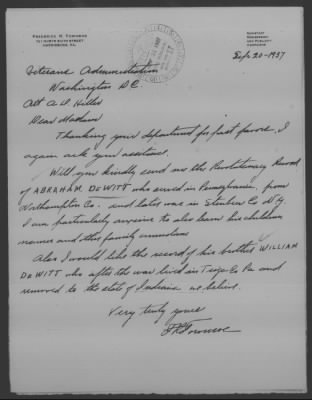 FREDERICK R.
HARRISBURG, PA.
Sep 20-1937
Veterans Administration
Washington DC
Att A.D. Hiller
Dear Madam
Thanking your department for past favors, I
again ask your assistance.
Will you kindly send me the Revolutionary Record
of ABRAHAM DEWITT who served in Pennsylvania, from
Northampton Co. and later was in Steuben Co N.Y.
I am particularly anxious to also learn his children
names and other family
Also I would like the record of his brother WILLIAM
DEWITT who after the war lived in Tioga Co Pa and
removed to the state of Indiana we believe.
Very truly yours